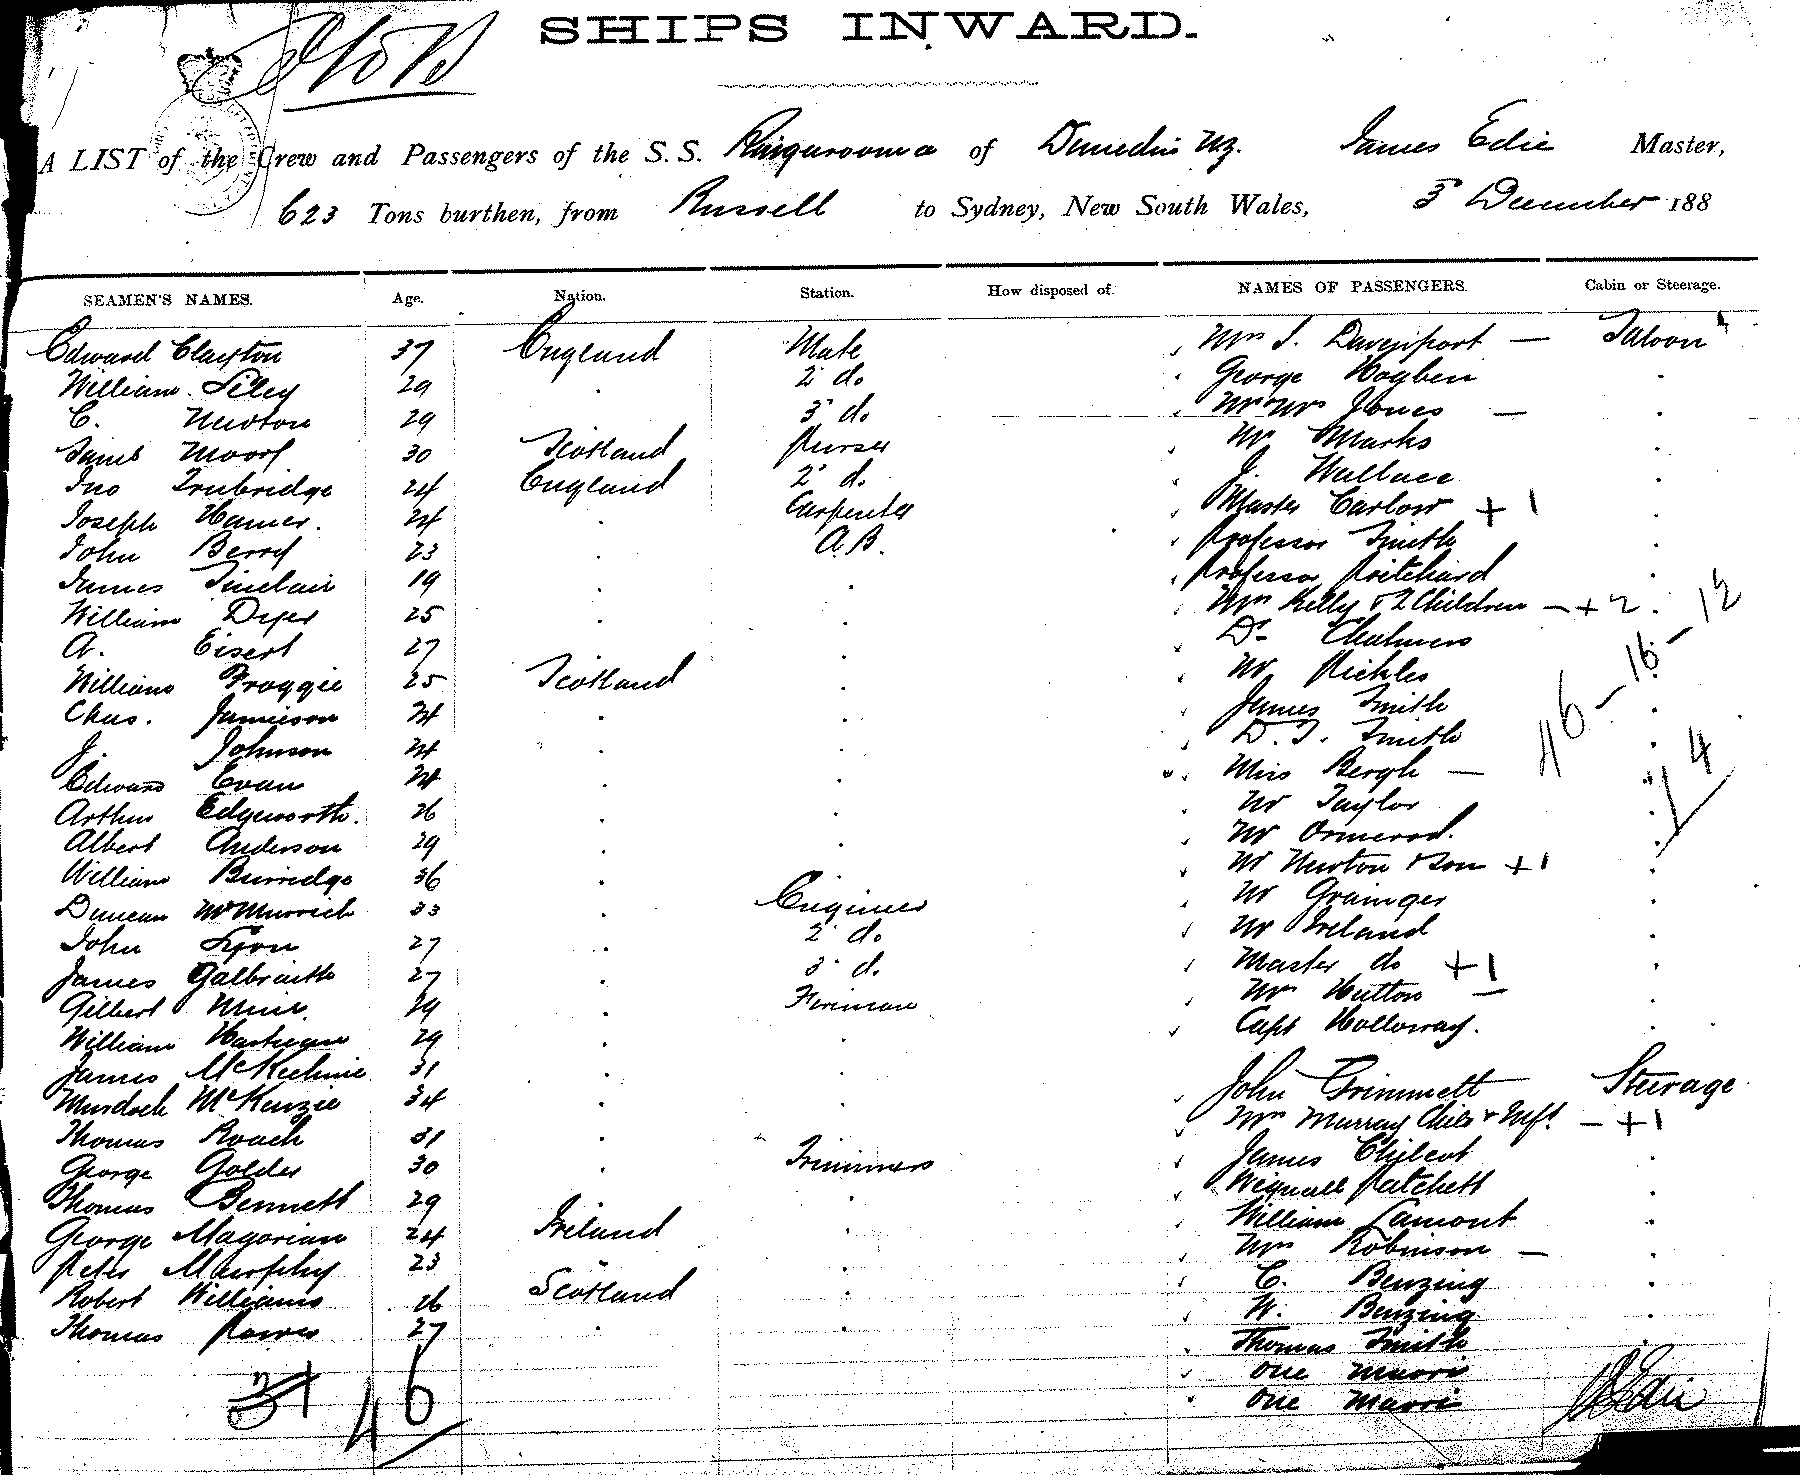 SHIPS INWARD.
A LIST of the Crew and Passengers of the S.S. Ringarooma of Dunedin NZ. James Edie Master,
623 Tons burthen, from Russell to Sydney, New South Wales, 3 December 188
SEAMEN'S NAMES. Age. Nation. Station. How disposed of. NAMES OF PASSENGERS. Cabin or Steerage.
Edward Clayton 37 England Mate Mrs S. Davenport — Saloon
William 29 2 do George Hogben
C. Newton 29 3 do Mr Mrs Jones —
30 Scotland Purser Mr Marks
Jno Trubridge 24 England 2 d. J. Wallace
Joseph Hamer. 24 Carpenter Master Carlow + 1
John Berry 23 A.B. Professor Smith
James Sinclair 19 Professor Pritchard
William Dyer 25 Mrs Kelly & 2 Children — + 2
A. Eisert 27 Dr Chalmers
William Froggie 25 Scotland Mr Pickles
Chas. Jamieson 24 James Smith
J. Johnson 24 D. T. Smith
Edward Evan 24 Miss Bergh —
Arthur Edgeworth. 26 Mr Taylor
Albert Anderson 29 Mr Ormerod.
William Burridge 36 Mr Newton & Son + 1
Duncan McMurrich 33 Engineer Mr Grainger
John Lyon 27 2 do Mr Ireland
James Galbraith 27 3 d. Master do + 1
Gilbert Muir. 29 Fireman Mrs Hutton —
William 29 Capt Holloway.
James McKechnie 31
John Grimmett Steerage
Murdoch McKenzie 34 Mrs Murray Child & Inft. — + 1
Thomas Roach 31 James Chilcot
George Golder 30 Trimmers Patchett
Thomas Bennett 29 William Lamont
George Magorian 24 Ireland Mrs Robinson —
Peter Murphy 23 C. Benzing
Robert Williams 26 Scotland W. Benzing
Thomas 27 Thomas Smith
One Maori
One Maori
46
46 — 16 — 12
4
J Edie